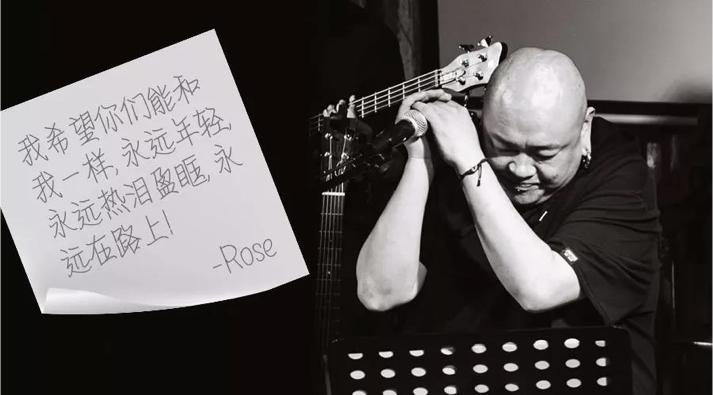 我希望你们能和
我一样,永远年轻,
永远热泪盈眶,永
远在路上!
-Rose